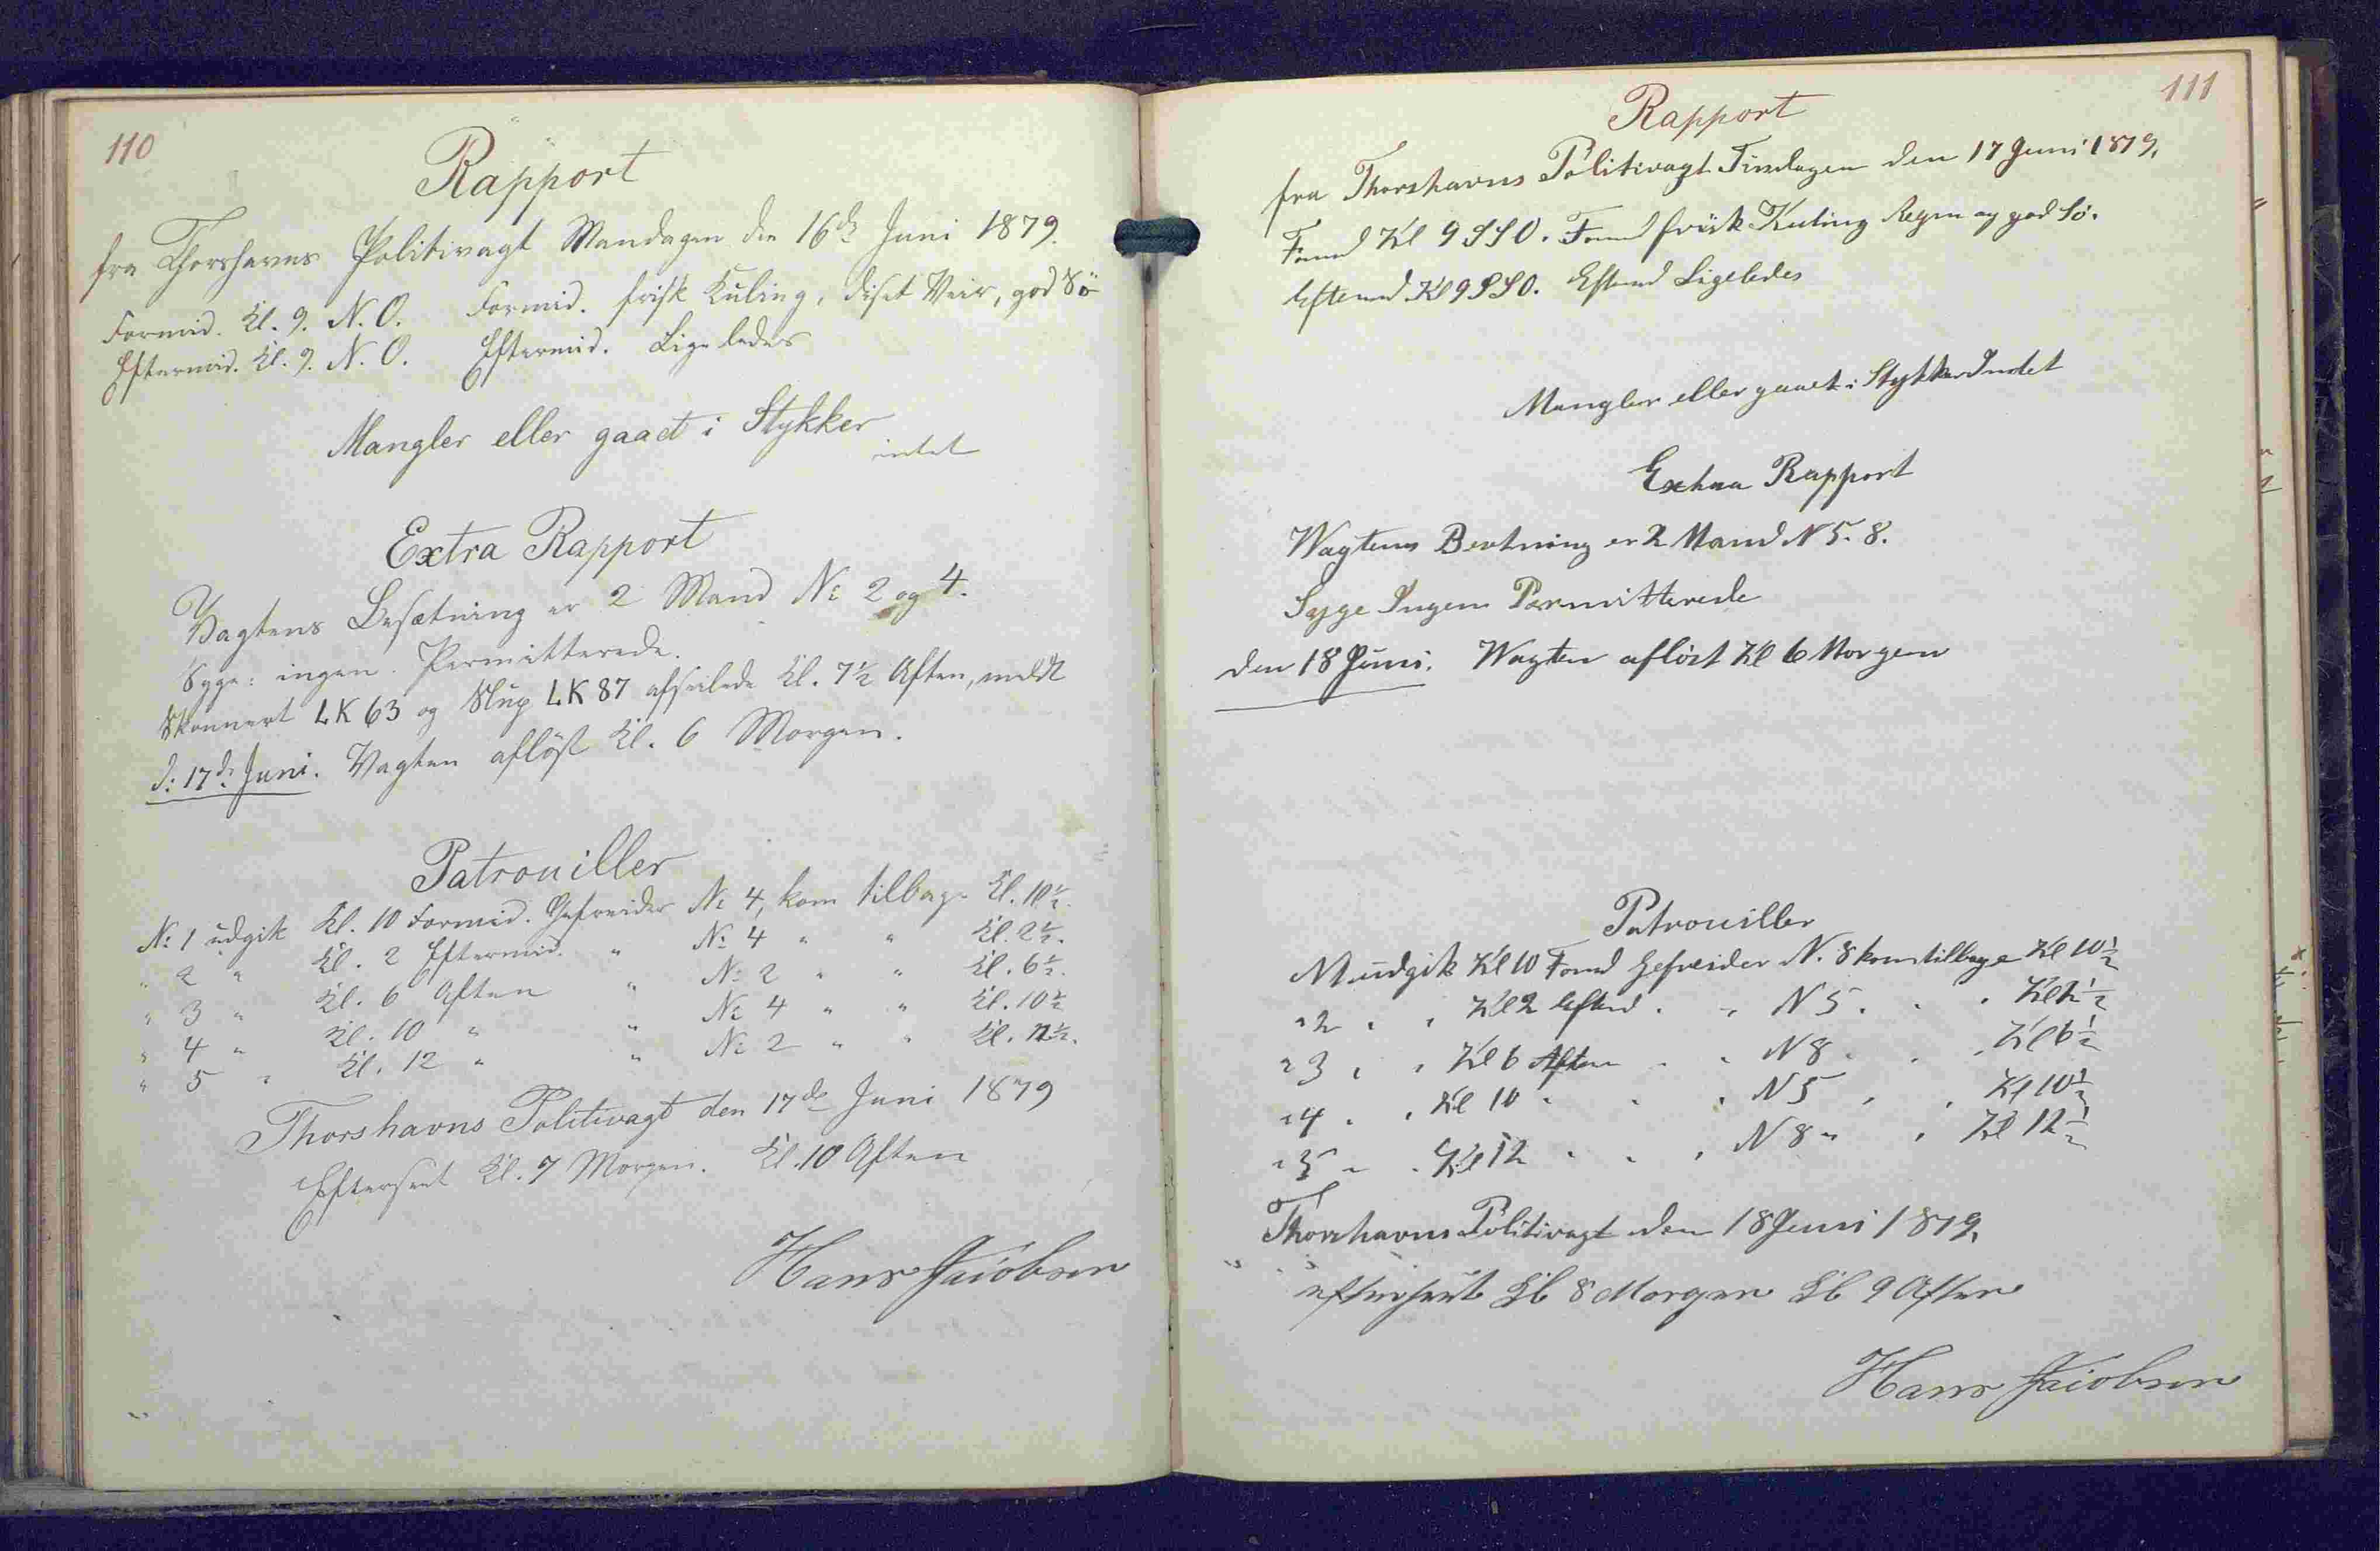 110
Rapport
fra Thorshavns Politivagt Mandagen den 16de Juni 1879.
Formid. Kl. 9. N. O. Formid. frisk Kuling, diset Veir, god Sö
Eftermid. Kl. 9. N. O. Eftermid. Ligeledes
Mangler eller gaaet i Stykker
intet
Extra Rapport
Vagtens Besætning er 2 Mand No 2 og 4.
Syge: ingen. Permitterede.
Skonnert LK 63 og Slup LK 87 afseilede Kl. 7½ Aften, meldt
d: 17de Juni. Vagten aflöst Kl. 6 Morgen.
Patrouiller
No 1 udgik Kl. 10 Formid. Gefreider No 4, kom tilbage Kl. 10½.
" 2 " Kl. 2 Eftermid. " No 4 " " Kl. 2½.
" 3 " Kl. 6 Aften " No 2 " " Kl. 6½.
" 4 " Kl. 10 " " No 4 " " Kl. 10½
" 5 " Kl. 12 " " No 2 " " Kl. 12½.
Thorshavns Politivagt den 17de Juni 1879
Efterseet Kl. 7 Morgen. Kl. 10 Aften
Hans Jacobsen
111
Rapport
fra Thorshavns Politivagt Tirsdagen den 17 Juni 1879.
Formd Kl 9 SSO. Formd frisk Kuling Regn og god Sö.
Eftermd. Kl 9 SSO. Eftermd Ligeledes
Mangler eller gaaet i Stykker Intet
Extraa Rapport
Wagtens Besetning er 2 Mand N 5. 8.
Syge Ingen Permitterede
den 18 Juni. Wagten aflöst Kl 6 Morgen
Patrouiller
N1 udgik Kl 10 Formd Gefreider N. 8 kom tilbage Kl 10½
" 2 " " Kl 2 Eftmd " " N 5 " " Kl 2½
" 3 " " Kl 6 Aften " " N 8 " " Kl 6½
" 4 " " Kl 10 " " " N 5 " " Kl 10½
" 5 " " Kl 12 " " " N 8 " " Kl 12½
Thorshavns Politivagt den 18 Juni 1879.
efterseet Kl 8 Morgen Kl 9 Aften
Hans Jacobsen